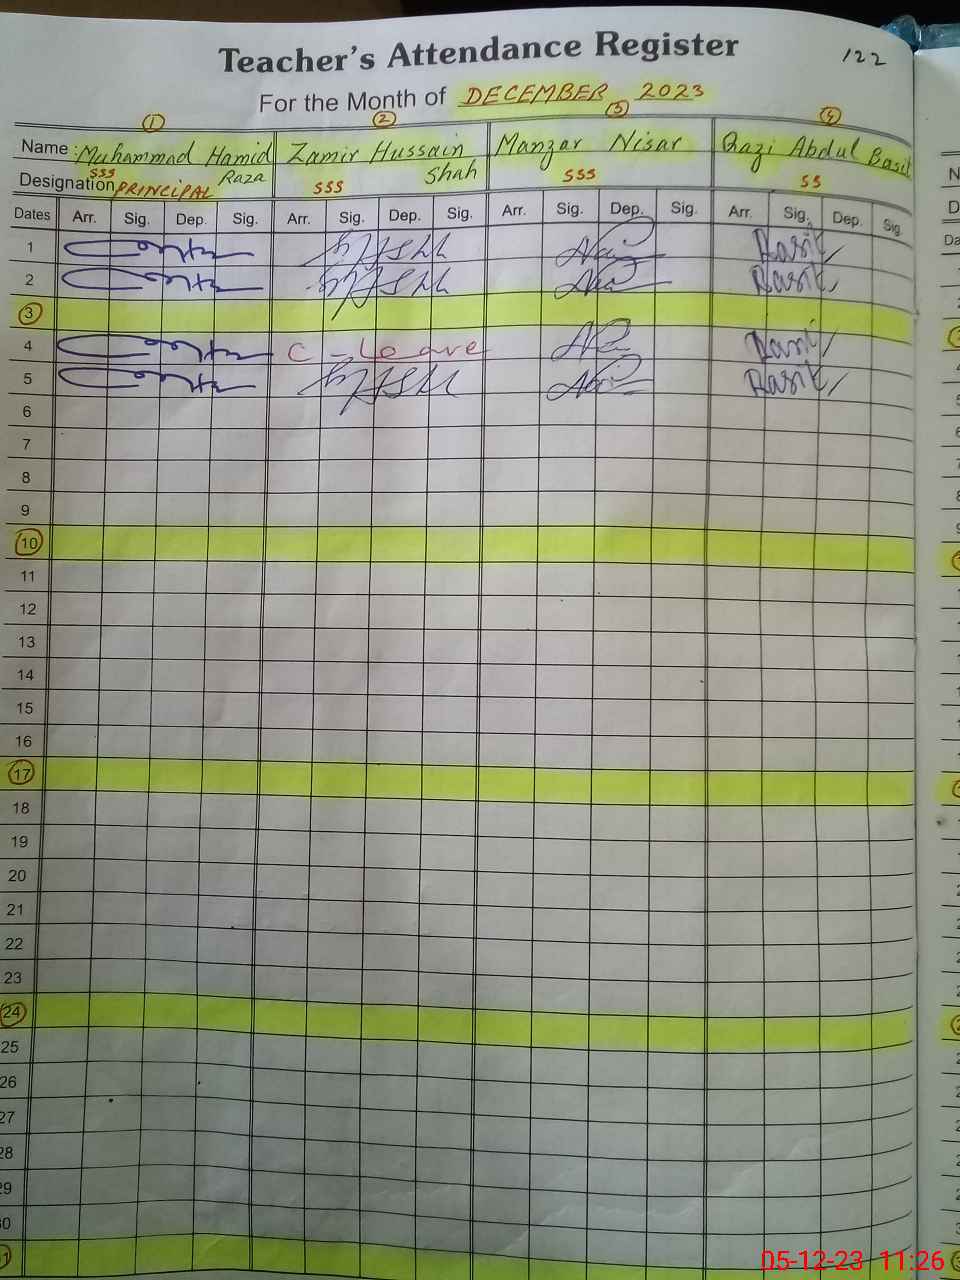 122
Teacher's Attendance Register
For the Month of DECEMBER 2023
1 2 3 4
Name: Muhammad Hamid Raza Zamir Hussain Shah Manzar Nisar Qazi Abdul Basit
Designation SSS PRINCIPAL SSS SSS SS
Dates Arr. Sig. Dep. Sig. Arr. Sig. Dep. Sig. Arr. Sig. Dep. Sig. Arr. Sig. Dep. Sig.
1
2
3
4 C-Leave
5
6
7
8
9
10
11
12
13
14
15
16
17
18
19
20
21
22
23
24
25
26
27
28
29
30
31
05-12-23 11:26